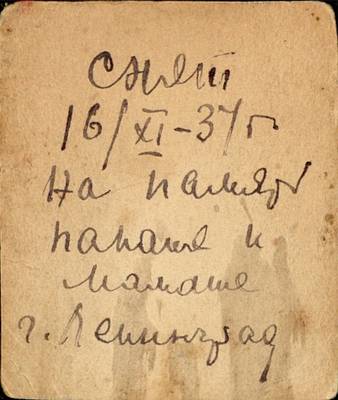 снят
16/XI-37 г.
на память
папаше и
мамаше
г. Ленинград